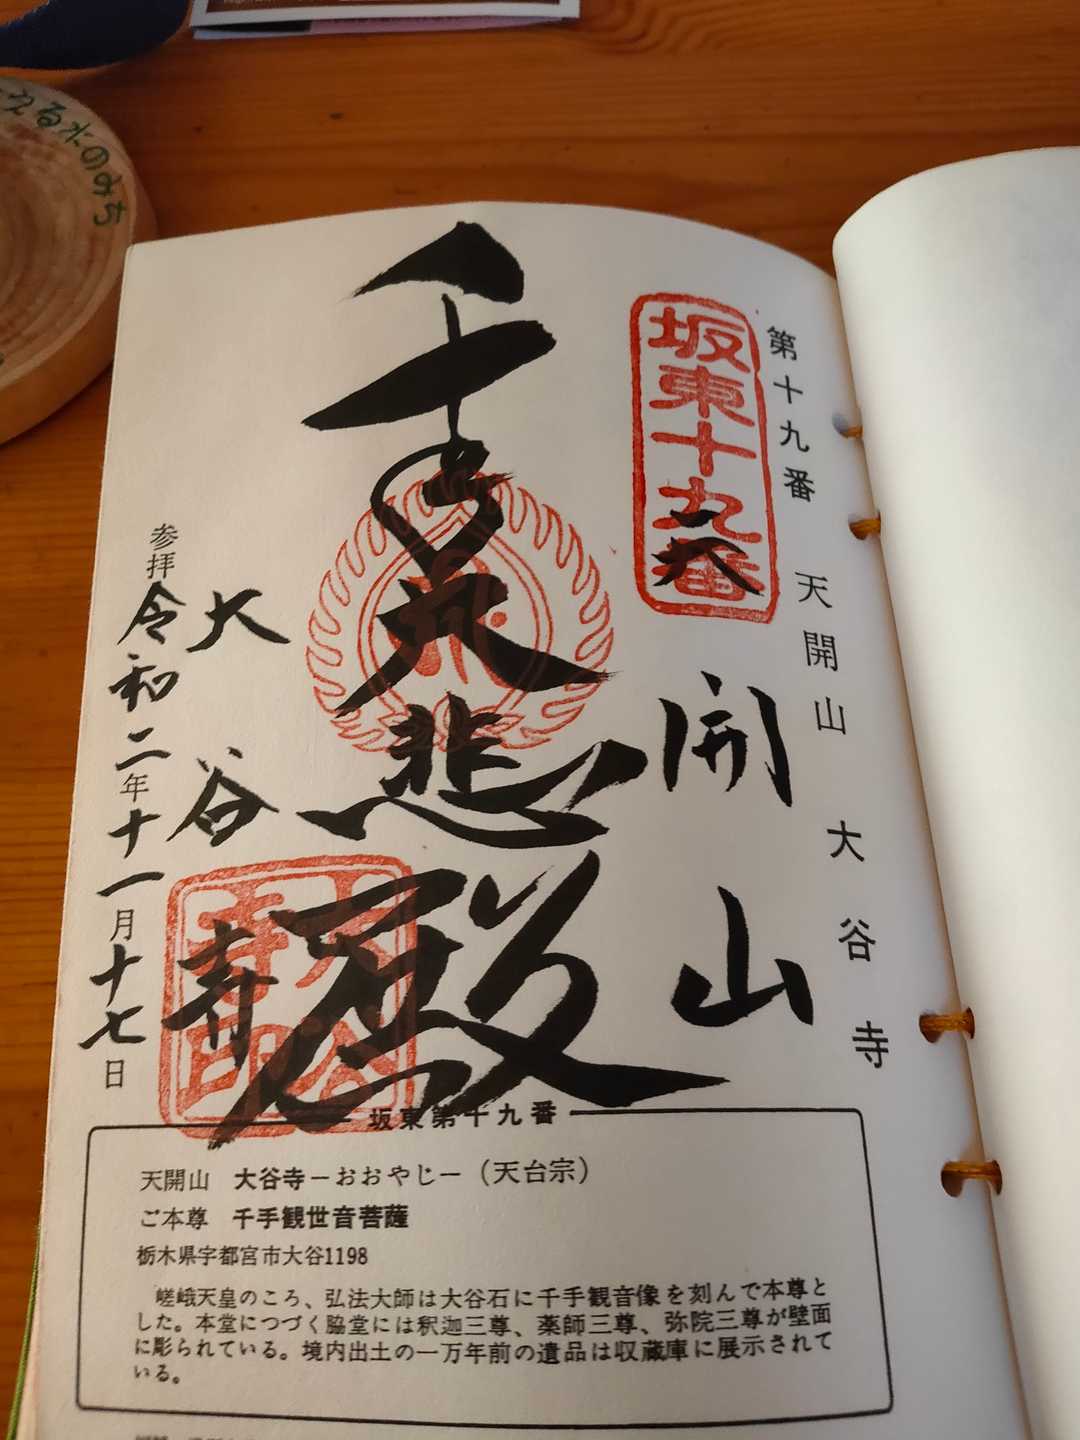 えるホのみち
第十九番 天開山 大谷寺
坂東十九番
天開山
千手大悲殿
大谷寺
参拝令和二年十一月十七日
大谷寺印
坂東第十九番
天開山 大谷寺－おおやじ－（天台宗）
ご本尊 千手観世音菩薩
栃木県宇都宮市大谷1198
嵯峨天皇のころ、弘法大師は大谷石に千手観音像を刻んで本尊と
した。本堂につづく脇堂には釈迦三尊、薬師三尊、弥院三尊が壁面
に彫られている。境内出土の一万年前の遺品は収蔵庫に展示されて
いる。